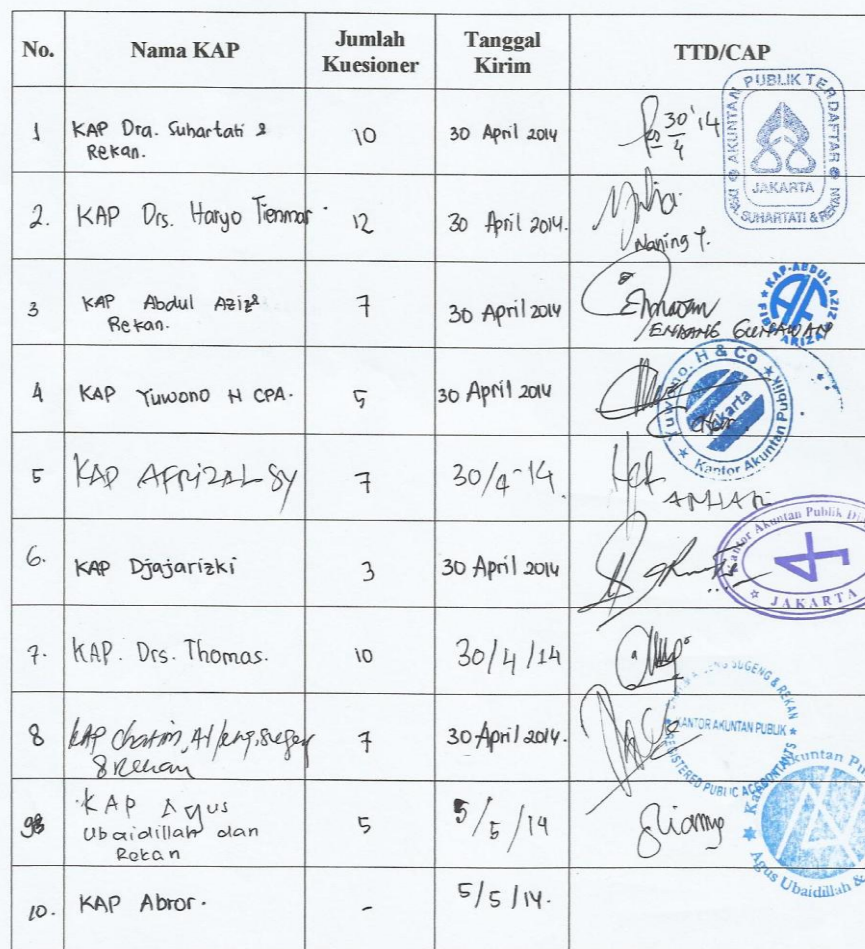 No. Nama KAP Jumlah Kuesioner Tanggal Kirim TTD/CAP
1 KAP Dra. Suhartati & Rekan. 10 30 April 2014 30'14 4
PUBLIK TERDAFTAR
AKUNTAN
JAKARTA
DRA. SUHARTATI & REKAN
2. KAP Drs. Haryo Tienmar. 12 30 April 2014. Naning Y.
3 KAP Abdul Aziz & Rekan. 7 30 April 2014 ENDANG GUNAWAN
KAP-ABDUL AZIZ FIBRI ARIZA
4 KAP Yuwono H CPA. 5 30 April 2014
Yuwono, H & Co
Jakarta
Kantor Akuntan Publik
5 KAP AFRIZAL SY 7 30/4-14.
6. KAP Djajarizki 3 30 April 2014
Kantor Akuntan Publik
JAKARTA
7. KAP. Drs. Thomas. 10 30/4/14
8 KAP Chatim, & Rekan 7 30 April 2014.
SUGENG & REKAN
KANTOR AKUNTAN PUBLIK
REGISTERED PUBLIC ACCOUNTANTS
9 KAP Agus Ubaidillah dan Rekan 5 5/5/14
Akuntan Pu
Agus Ubaidillah &
10. KAP Abror. - 5/5/14.